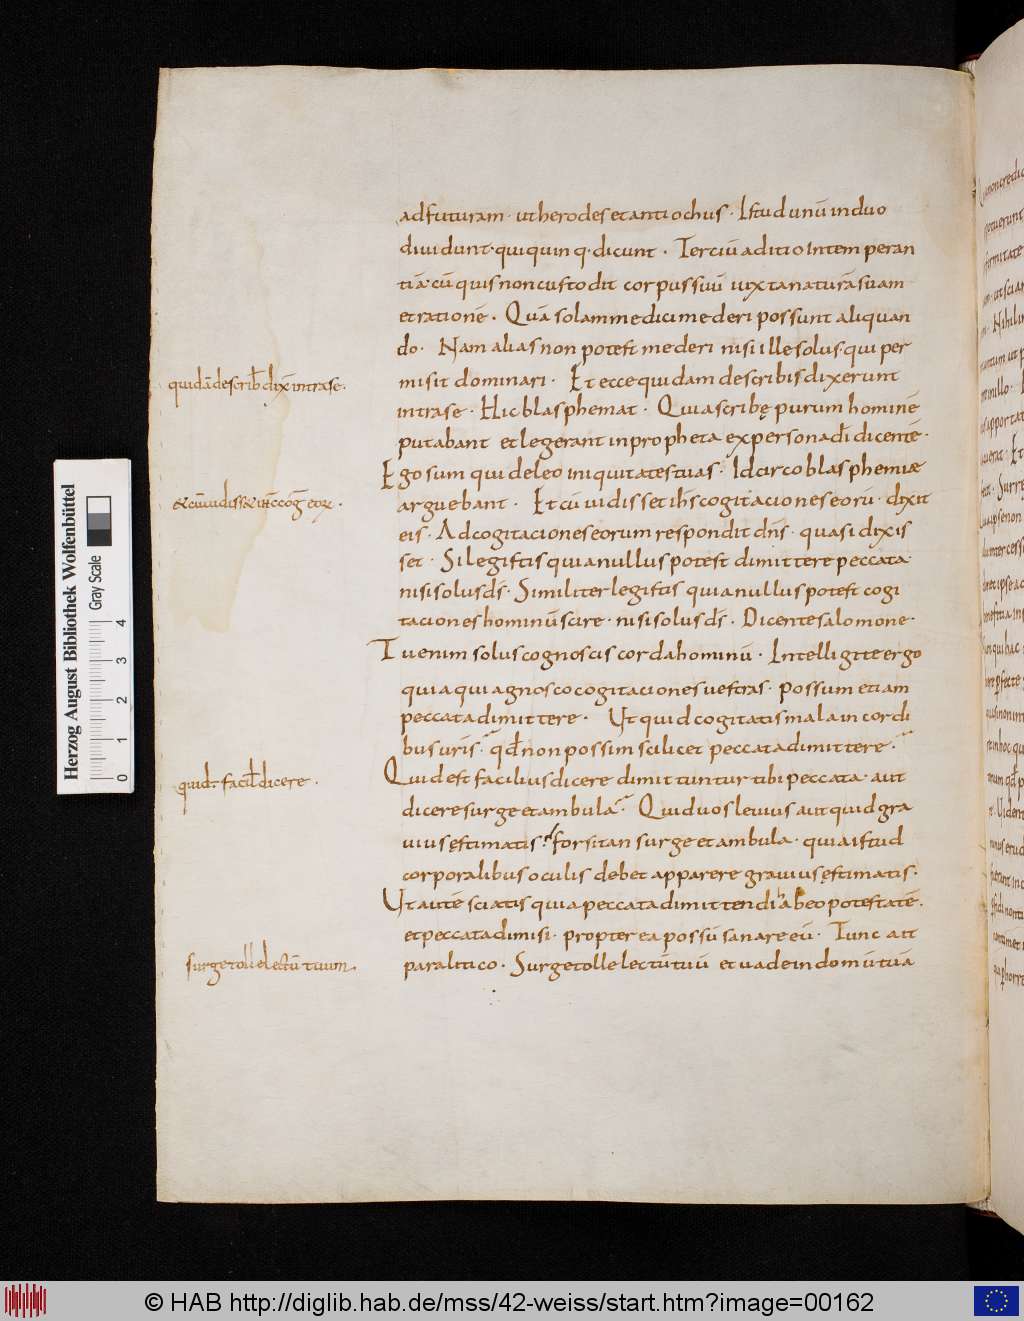 ad futuram · ut herodes et antiochus · Istud unū in duo
diuidunt · qui quinq · dicunt · Terciū aditio Intemperan
tiā · cū quis non custodit corpus suū iuxta naturā suam
et rationē · Quā solam medici mederi possunt aliquan
do · Nam alias non potest mederi nisi ille solus qui per
quidā describ dix̄ intrase ·
misit dominari · Et ecce quidam de scribis dixerunt
intrase · Hic blasphemat · Quia scribę purum hominē
putabant et legerant in propheta ex persona dī dicentē ·
Ego sum qui deleo iniquitates tuas · Idcirco blasphemiæ
& cū uidiss&
arguebant · Et cū uidisset ihs cogitaciones eorū · dixit
eis · Ad cogitaciones eorum respondit dn̄s · quasi dixis
set · Si legistis quia nullus potest dimittere peccata ·
nisi solus ds̄ · Similiter legistis quia nullus potest cogi
taciones hominū scire · nisi solus ds̄ · Dicente salomone ·
Tu enim solus cognoscis corda hominū · Intelligite ergo
quia qui agnosco cogitaciones uestras · possum etiam
peccata dimittere · Ut quid cogitatis mala in cordi
bus uris · qđ non possim scilicet peccata dimittere ·
quid · facil dicere ·
Quid est facilius dicere dimittuntur tibi peccata · aut
dicere surge et ambula · Quid uos leuius aut quid gra
uius ęstimatis · forsitan surge et ambula · quia istud
corporalibus oculis debet apparere grauius ęstimatis ·
Ut autē sciatis quia peccata dimittendi habeo potestatē ·
et peccata dimisi · propterea possū sanare eū · Tunc ait
surge tolle lectū tuum ·
paralitico · Surge tolle lectū tuū et uade in domū tuā
Herzog August Bibliothek Wolfenbüttel
Gray Scale
0 1 2 3 4
© HAB http://diglib.hab.de/mss/42-weiss/start.htm?image=00162